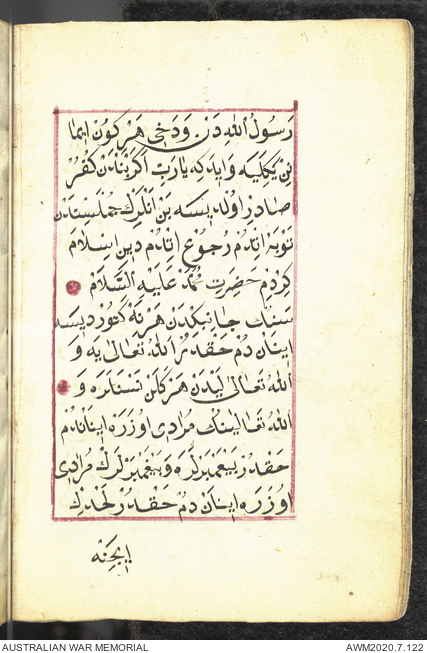 رَسُولُ اللّٰهِ دَنْ وَدَخِى هَرْ كُونْ اِيمَا
نِنْ يَكِلَيَه وَايدَه كِه يَارَبِ اَكَرْ بَنْدَنْ كُفُرْ
صَادِرْ اُولْدِيسَه بَنْ اَنْلَرِكْ جُمْلَسِنْدَنْ
تَوْبَه اِتْدُمْ رُجُوعْ اِتْدُمْ دِينِ اِسْلَامَ
كِرْدِمْ حَضَرتِ مُحَمَّدْ عَلَيْهِ السَّلَامْ
سَنِكْ جَانِبِكْدَنْ هَرْ نَه كَتُورْدِيسَه
اِينَانْدُمْ حَقْدُرْ اَللّٰهُ تَعَالٰى يَه وَ
اَللّٰهُ تَعَالٰى لِيدَنْ هَرْ كَلَنْ نَسْنَلَرَه وَ
اَللّٰهُ تَعَالَينِكْ مُرَادِى اُوزَرَه اِينَانْدُمْ
حَقْدُرْ پَيغَمْبَرْلَرَه وَپَيْغَمْبَرْلَرِكْ مُرَادِى
اُوزَرَه اِينَانْدُمْ حَقْدُرْ لَحَدِكْ
اِيچِنَه
AUSTRALIAN WAR MEMORIAL
AWM2020.7.122